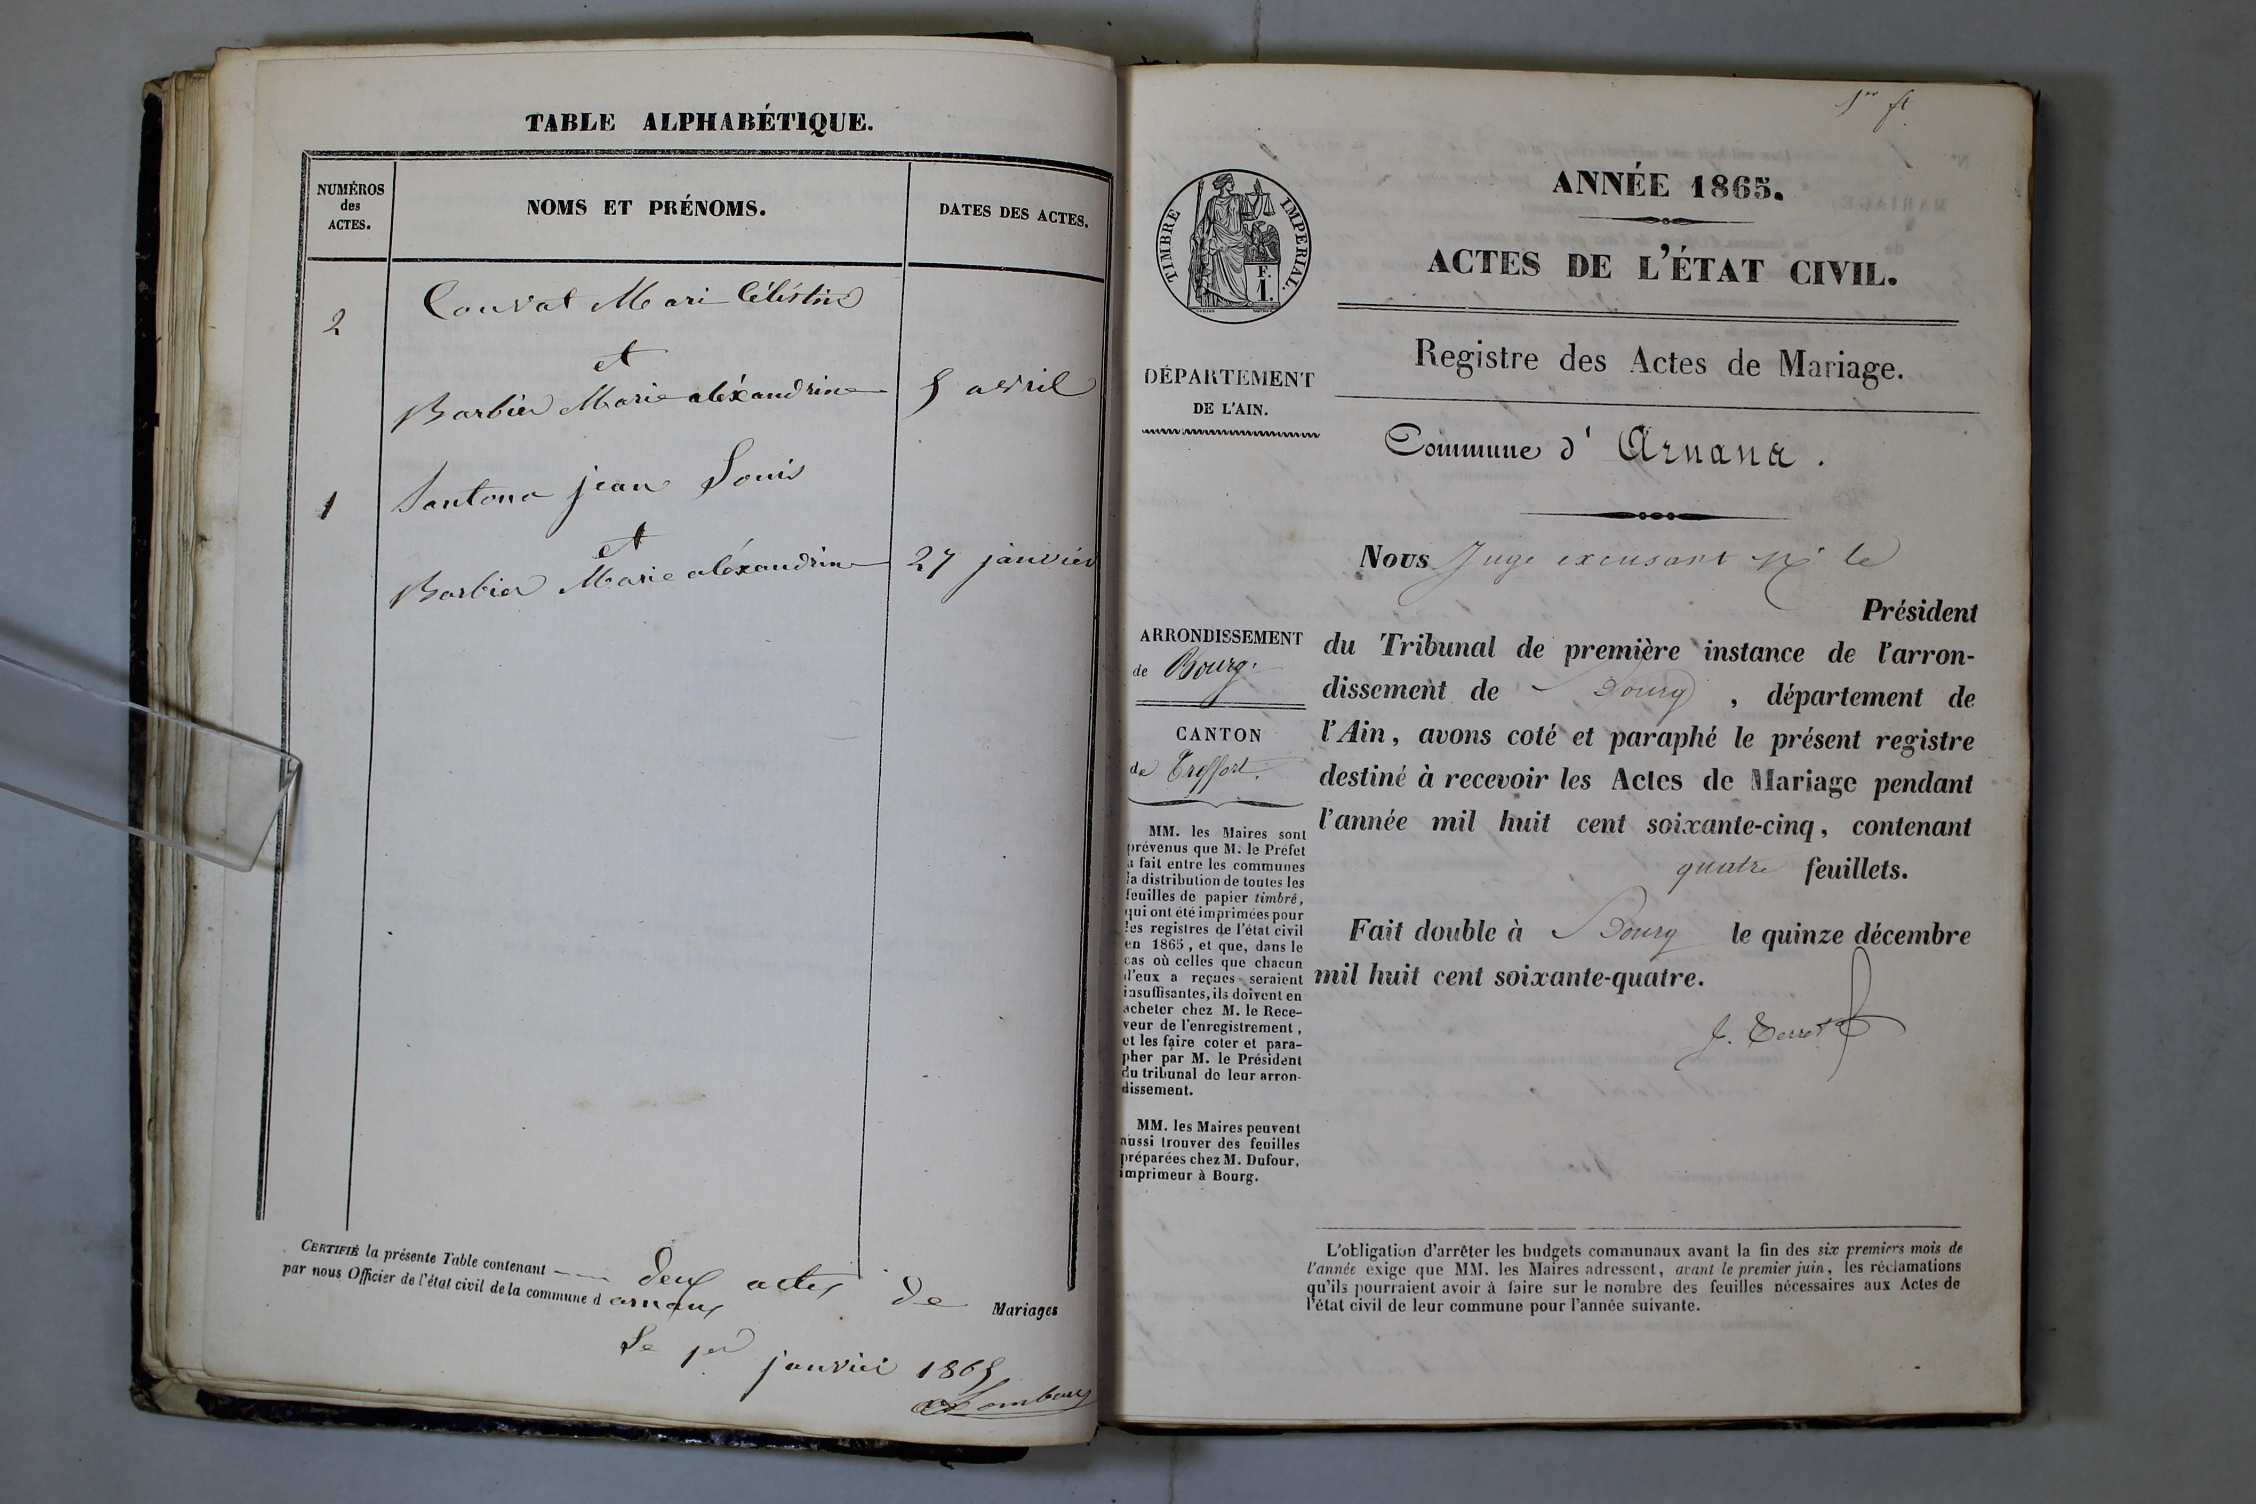 TABLE ALPHABÉTIQUE.
NUMÉROS
des
ACTES.
NOMS ET PRÉNOMS.
DATES DES ACTES.
2
Convat Mari Céléstin
et
Barbier Marie aléxandrine
5 avril
1
Santona jean Louis
et
Barbier Marie aléxandrine
27 janvier
CERTIFIÉ la présente Table contenant deux actes de Mariages
par nous Officier de l'état civil de la commune d arnans
Le 1er janvier 1865
1er ft
TIMBRE IMPERIAL.
F.
1.
ANNÉE 1865.
ACTES DE L'ÉTAT CIVIL.
Registre des Actes de Mariage.
DÉPARTEMENT
DE L'AIN.
Commune d' Arnans.
ARRONDISSEMENT
de Bourg.
CANTON
de Treffort.
MM. les Maires sont
prévenus que M. le Préfet
a fait entre les communes
la distribution de toutes les
feuilles de papier timbré,
qui ont été imprimées pour
les registres de l'état civil
en 1865, et que, dans le
cas où celles que chacun
d'eux a reçues seraient
insuffisantes, ils doivent en
acheter chez M. le Rece-
veur de l'enregistrement,
et les faire coter et para-
pher par M. le Président
du tribunal de leur arron-
dissement.
MM. les Maires peuvent
aussi trouver des feuilles
préparées chez M. Dufour,
imprimeur à Bourg.
Nous Juge excusant Mr le
Président
du Tribunal de première instance de l'arron-
dissement de Bourg, département de
l'Ain, avons coté et paraphé le présent registre
destiné à recevoir les Actes de Mariage pendant
l'année mil huit cent soixante-cinq, contenant
quatre feuillets.
Fait double à Bourg le quinze décembre
mil huit cent soixante-quatre.
L'obligation d'arrêter les budgets communaux avant la fin des six premiers mois de
l'année exige que MM. les Maires adressent, avant le premier juin, les réclamations
qu'ils pourraient avoir à faire sur le nombre des feuilles nécessaires aux Actes de
l'état civil de leur commune pour l'année suivante.